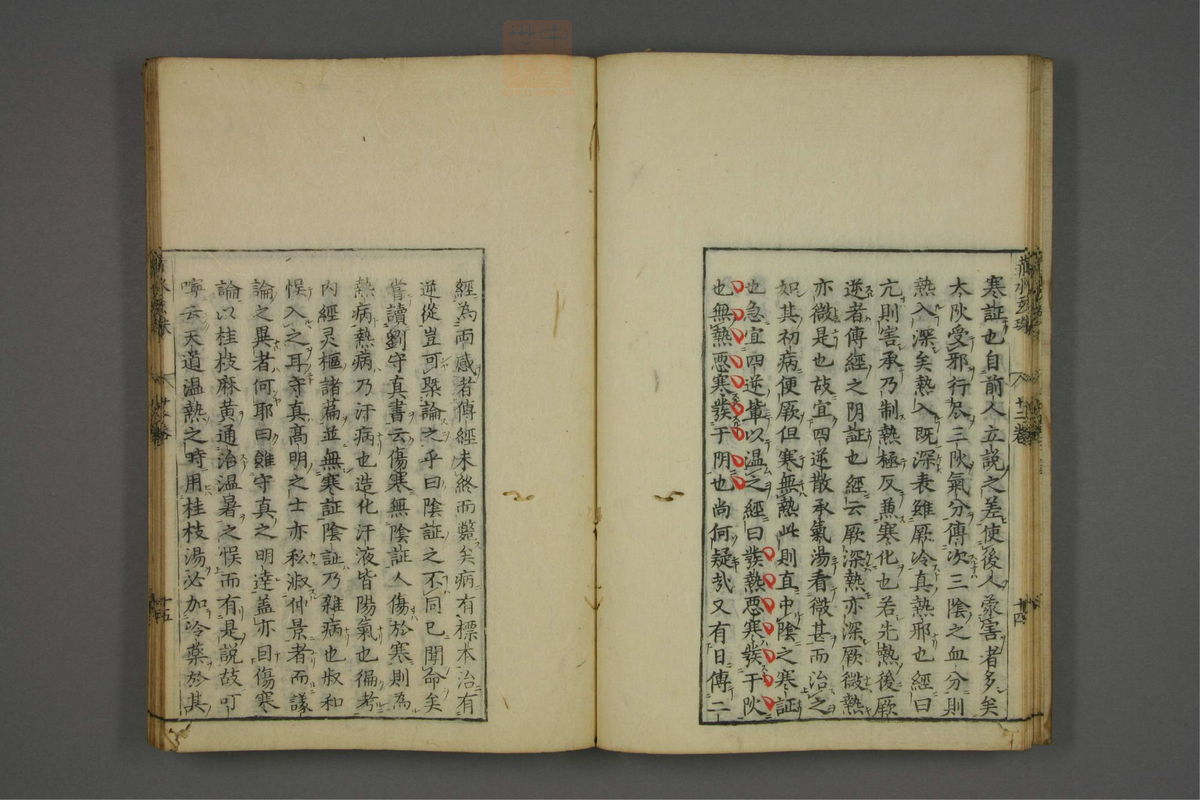 寒証也自前人立説之差使後人蒙害者多矣
太阦受邪行尽三阦氣分傳次三陰之血分則
熱入深矣熱入既深表雖厥冷真熱邪也經曰
亢則害承乃制熱極反兼寒化也若先熱後厥
逆者傳經之阴証也經云厥深熱亦深厥微熱
亦微是也故宜四逆散承氣湯看微甚而治之
如其初病便厥但寒無熱此則直中陰之寒証
也急宜四逆軰以温之經曰發熱悪寒發于阦
也無熱悪寒發于阴也尚何疑㢤又有日傳二
廿四
經為兩感者傳經未終而斃矣病有標本治有
逆從豈可槩論之乎曰陰証之不同已聞命矣
嘗讀劉守真書云傷寒無陰証人傷於寒則為
熱病熱病乃汗病也造化汗液皆陽氣也徧考
内經灵樞諸篇並無寒証陰証乃雜病也叔和
悮入之耳守真髙明之士亦私淑仲景者而議
論之異者何耶曰雖守真之明達盖亦因傷寒
論以桂枝麻黄通治温暑之悮而有是説故叮
嚀云天道温熱之時用桂枝湯必加冷藥於其
廿五